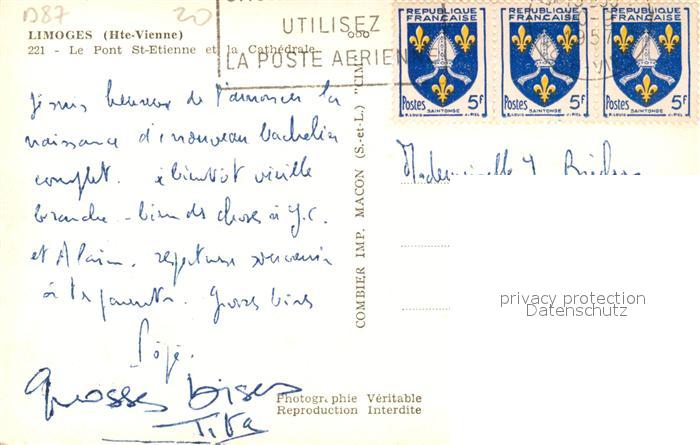 D87 20
LIMOGES (Hte-Vienne)
221 - Le Pont St-Etienne et la Cathédrale
UTILISEZ
LA POSTE AERIENNE
1957
REPUBLIQUE FRANÇAISE
Postes 5F
SAINTONGE
REPUBLIQUE FRANÇAISE
Postes 5F
SAINTONGE
REPUBLIQUE FRANÇAISE
Postes 5F
SAINTONGE
Je suis heureux de t'annoncer la
naissance d'un nouveau bachelier
complet. à bientôt vieille
branche - bien des choses à J.C.
et Alain. respectueux souvenir
à tes parents. Grosses bises
grosses bises
Tita
COMBIER IMP. MACON (S.-et-L.) "CIM"
Mademoiselle
privacy protection
Datenschutz
Photographie Véritable
Reproduction Interdite